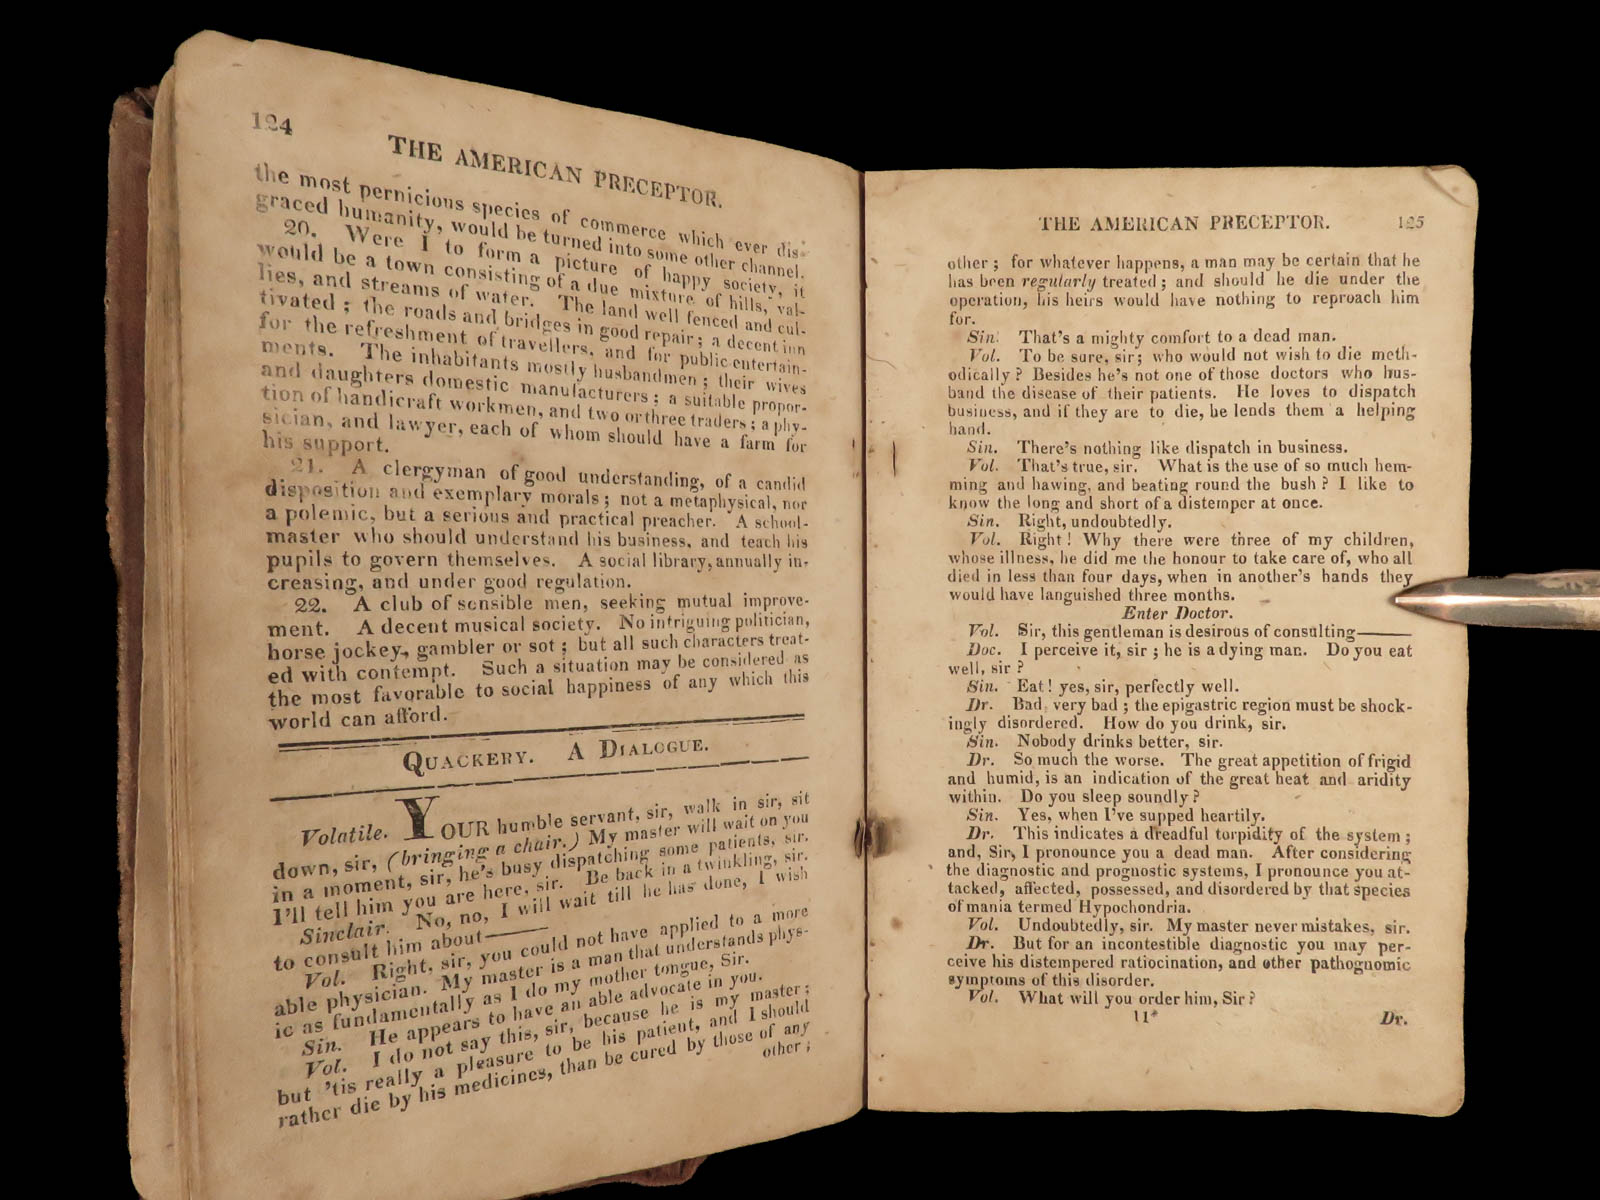 124
THE AMERICAN PRECEPTOR.
the most pernicious species of commerce which ever dis-
graced humanity, would be turned into some other channel.
20. Were I to form a picture of happy society, it
would be a town consisting of a due mixture of hills, val-
lies, and streams of water. The land well fenced and cul-
tivated; the roads and bridges in good repair; a decent inn
for the refreshment of travellers, and for public entertain-
ments. The inhabitants mostly husbandmen; their wives
and daughters domestic manufacturers; a suitable propor-
tion of handicraft workmen, and two or three traders; a phy-
sician, and lawyer, each of whom should have a farm for
his support.
21. A clergyman of good understanding, of a candid
disposition and exemplary morals; not a metaphysical, nor
a polemic, but a serious and practical preacher. A school-
master who should understand his business, and teach his
pupils to govern themselves. A social library, annually in-
creasing, and under good regulation.
22. A club of sensible men, seeking mutual improve-
ment. A decent musical society. No intriguing politician,
horse jockey, gambler or sot; but all such characters treat-
ed with contempt. Such a situation may be considered as
the most favorable to social happiness of any which this
world can afford.
QUACKERY. A DIALOGUE.
Volatile. YOUR humble servant, sir, walk in sir, sit
down, sir, (bringing a chair.) My master will wait on you
in a moment, sir, he's busy dispatching some patients, sir.
I'll tell him you are here, sir. Be back in a twinkling, sir.
Sinclair. No, no, I will wait till he has done, I wish
to consult him about——
Vol. Right, sir, you could not have applied to a more
able physician. My master is a man that understands phys-
ic as fundamentally as I do my mother tongue, Sir.
Sin. He appears to have an able advocate in you.
Vol. I do not say this, sir, because he is my master;
but 'tis really a pleasure to be his patient, and I should
rather die by his medicines, than be cured by those of any
other;
THE AMERICAN PRECEPTOR. 125
other; for whatever happens, a man may be certain that he
has been regularly treated; and should he die under the
operation, his heirs would have nothing to reproach him
for.
Sin. That's a mighty comfort to a dead man.
Vol. To be sure, sir; who would not wish to die meth-
odically? Besides he's not one of those doctors who hus-
band the disease of their patients. He loves to dispatch
business, and if they are to die, he lends them a helping
hand.
Sin. There's nothing like dispatch in business.
Vol. That's true, sir. What is the use of so much hem-
ming and hawing, and beating round the bush? I like to
know the long and short of a distemper at once.
Sin. Right, undoubtedly.
Vol. Right! Why there were three of my children,
whose illness, he did me the honour to take care of, who all
died in less than four days, when in another's hands they
would have languished three months.
Enter Doctor.
Vol. Sir, this gentleman is desirous of consulting——
Doc. I perceive it, sir; he is a dying man. Do you eat
well, sir?
Sin. Eat! yes, sir, perfectly well.
Dr. Bad, very bad; the epigastric region must be shock-
ingly disordered. How do you drink, sir.
Sin. Nobody drinks better, sir.
Dr. So much the worse. The great appetition of frigid
and humid, is an indication of the great heat and aridity
within. Do you sleep soundly?
Sin. Yes, when I've supped heartily.
Dr. This indicates a dreadful torpidity of the system;
and, Sir, I pronounce you a dead man. After considering
the diagnostic and prognostic systems, I pronounce you at-
tacked, affected, possessed, and disordered by that species
of mania termed Hypochondria.
Vol. Undoubtedly, sir. My master never mistakes, sir.
Dr. But for an incontestible diagnostic you may per-
ceive his distempered ratiocination, and other pathognomic
symptoms of this disorder.
Vol. What will you order him, Sir?
11* Dr.